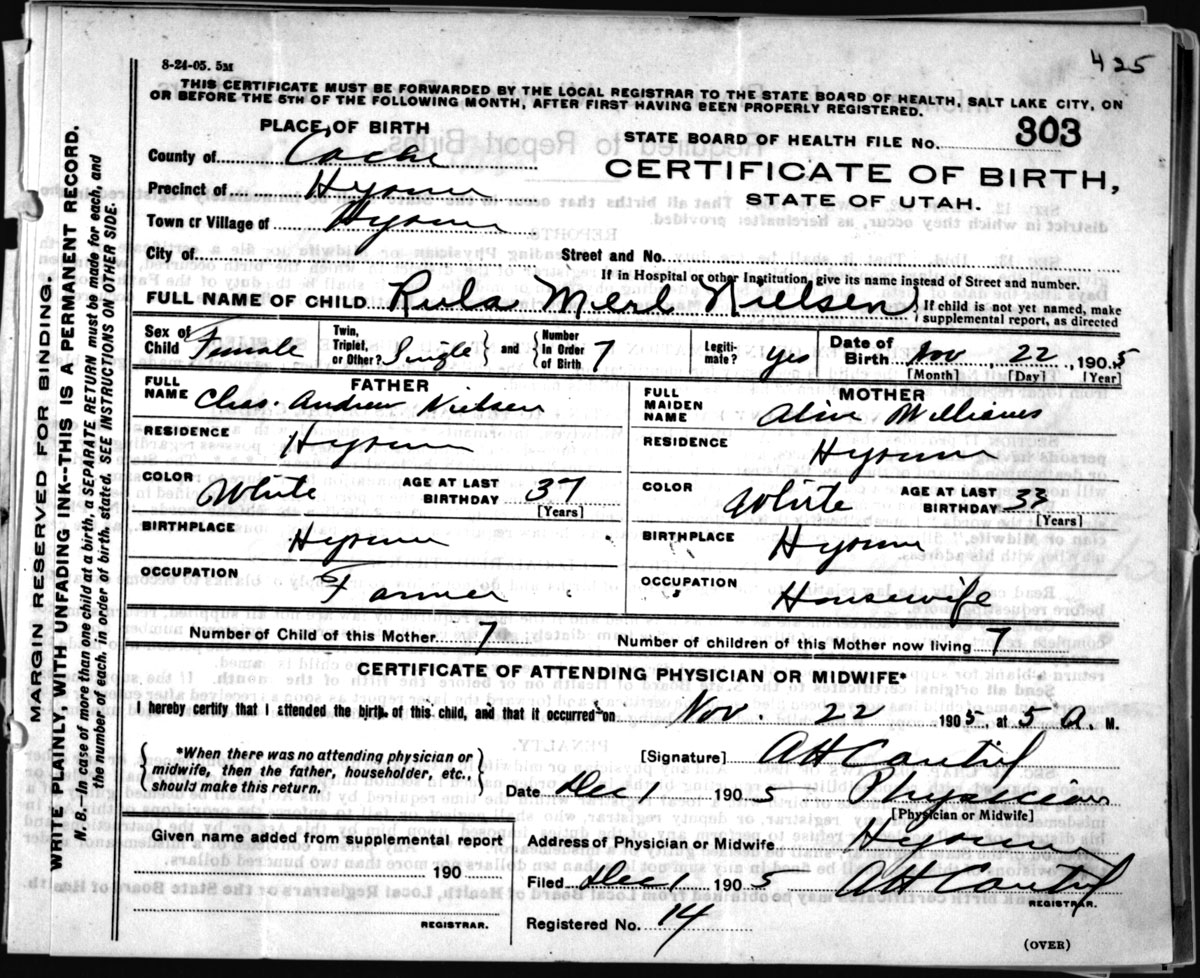 425
8-24-05. 5M
THIS CERTIFICATE MUST BE FORWARDED BY THE LOCAL REGISTRAR TO THE STATE BOARD OF HEALTH, SALT LAKE CITY, ON
OR BEFORE THE 5TH OF THE FOLLOWING MONTH, AFTER FIRST HAVING BEEN PROPERLY REGISTERED.
PLACE OF BIRTH
STATE BOARD OF HEALTH FILE No. 303
County of Cache
CERTIFICATE OF BIRTH,
Precinct of Hyrum
STATE OF UTAH.
Town or Village of Hyrum
City of Street and No.
If in Hospital or other Institution, give its name instead of Street and number.
FULL NAME OF CHILD Rula Merl Nielsen } If child is not yet named, make supplemental report, as directed
Sex of Child Female Twin, Triplet, or Other? Single } and { Number In Order of Birth 7 Legitimate? yes Date of Birth Nov, 22, 1905
[Month] [Day] [Year]
FATHER MOTHER
FULL NAME Chas. Andrew Nielsen FULL MAIDEN NAME Williams
RESIDENCE Hyrum RESIDENCE Hyrum
COLOR White AGE AT LAST BIRTHDAY 37 [Years] COLOR White AGE AT LAST BIRTHDAY 33 [Years]
BIRTHPLACE Hyrum BIRTHPLACE Hyrum
OCCUPATION Farmer OCCUPATION Housewife
Number of Child of this Mother 7 Number of children of this Mother now living 7
CERTIFICATE OF ATTENDING PHYSICIAN OR MIDWIFE*
I hereby certify that I attended the birth of this child, and that it occurred on Nov. 22 1905, at 5 a. M.
{ *When there was no attending physician or midwife, then the father, householder, etc., should make this return. }
[Signature] A H
Date Dec 1 1905 Physician
[Physician or Midwife]
Given name added from supplemental report
Address of Physician or Midwife Hyrum
190
Filed Dec 1 1905 A H
REGISTRAR.
REGISTRAR.
Registered No. 14
(OVER)
MARGIN RESERVED FOR BINDING.
WRITE PLAINLY, WITH UNFADING INK--THIS IS A PERMANENT RECORD.
N. B.--In case of more than one child at a birth, a SEPARATE RETURN must be made for each, and
the number of each, in order of birth, stated. SEE INSTRUCTIONS ON OTHER SIDE.